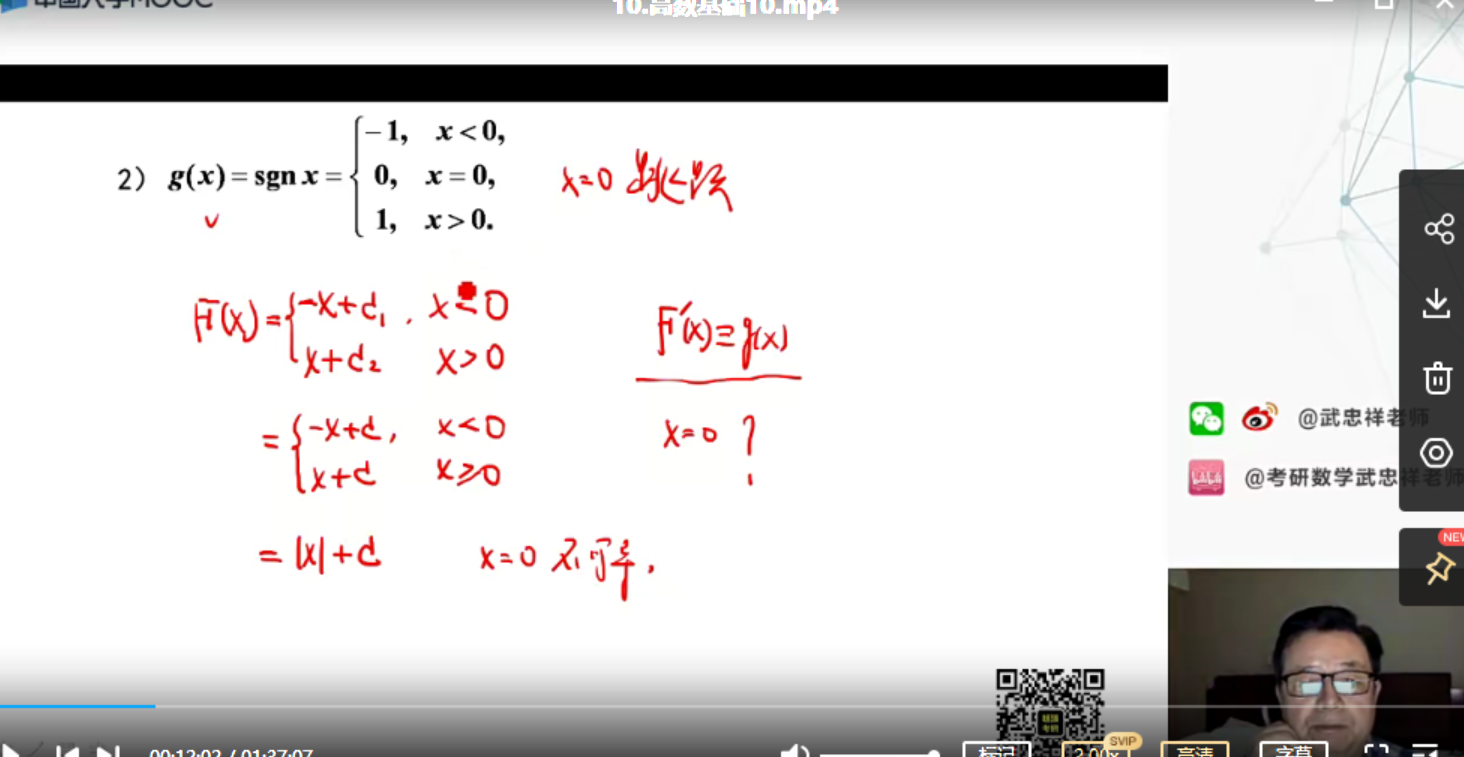 中国大学MOOC
10.高数基础10.mp4
2) g(x) = sgn x = { -1, x < 0,
0, x = 0,
1, x > 0.
x=0 跳跃
F(x) = { -x+C₁, x<0
x+C₂ x>0
F'(x) ≡ g(x)
= { -x+C, x<0
x+C x≥0
x=0 ?
= |x|+C x=0 不可导.
@武忠祥老师
@考研数学武忠祥老师
NEW
00:12:02 / 01:37:07
标记
2.00x
SVIP
高清
字幕